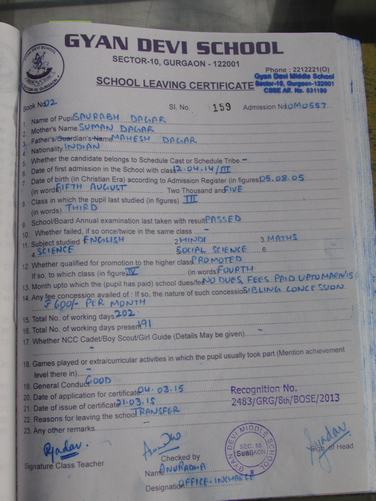 GYAN DEVI SCHOOL
SECTOR-10, GURGAON - 122001
Phone : 2212221(O)
Gyan Devi Middle School
Sector-10, Gurgaon-122001
CBSE Af. No. 531190
SCHOOL LEAVING CERTIFICATE
Book No 02 Sl. No. 159 Admission No
1. Name of Pupil SAURABH DAGAR
2. Mother's Name SUMAN DAGAR
3. Father's/Guardian's Name MAHESH DAGAR
4. Nationality INDIAN
5. Whether the candidate belongs to Schedule Cast or Schedule Tribe -
6. Date of first admission in the School with class 12.04.14/III
7. Date of birth (in Christian Era) according to Admission Register (in figures) 25.08.05
(in words) FIFTH AUGUST Two Thousand and FIVE
8. Class in which the pupil last studied (in figures) III
(in words) THIRD
9. School/Board Annual examination last taken with result PASSED
10. Whether failed, if so once/twice in the same class -
11. Subject studied 1 ENGLISH 2 HINDI 3 MATHS
4 SCIENCE 5 SOCIAL SCIENCE 6
12. Whether qualified for promotion to the higher class PROMOTED
If so, to which class (in figure) IV (in words) FOURTH
13. Month upto which the (pupil has paid) school dues/fee NO DUES FEES PAID UPTO MAR'15
14. Any fee concession availed of : If so, the nature of such concession SIBLING CONCESSION
₹ 600/- PER MONTH
15. Total No. of working days 202
16. Total No. of working days present 191
17. Whether NCC Cadet/Boy Scout/Girl Guide (Details may be given)
-
18. Games played or extra/curricular activities in which the pupil usually took part (Mention achievement
level there in) -
19. General Conduct GOOD
20. Date of application for certificate 04.03.15
21. Date of issue of certificate 21.03.15
22. Reasons for leaving the school TRANSFER
23. Any other remarks -
Recognition No.
2483/GRG/8th/BOSE/2013
GYAN DEVI MIDDLE SCHOOL
SEC. 10
GURGAON
Signature Class Teacher
Checked by
Name ANURADHA
Designation OFFICE-INCHARGE
of Head